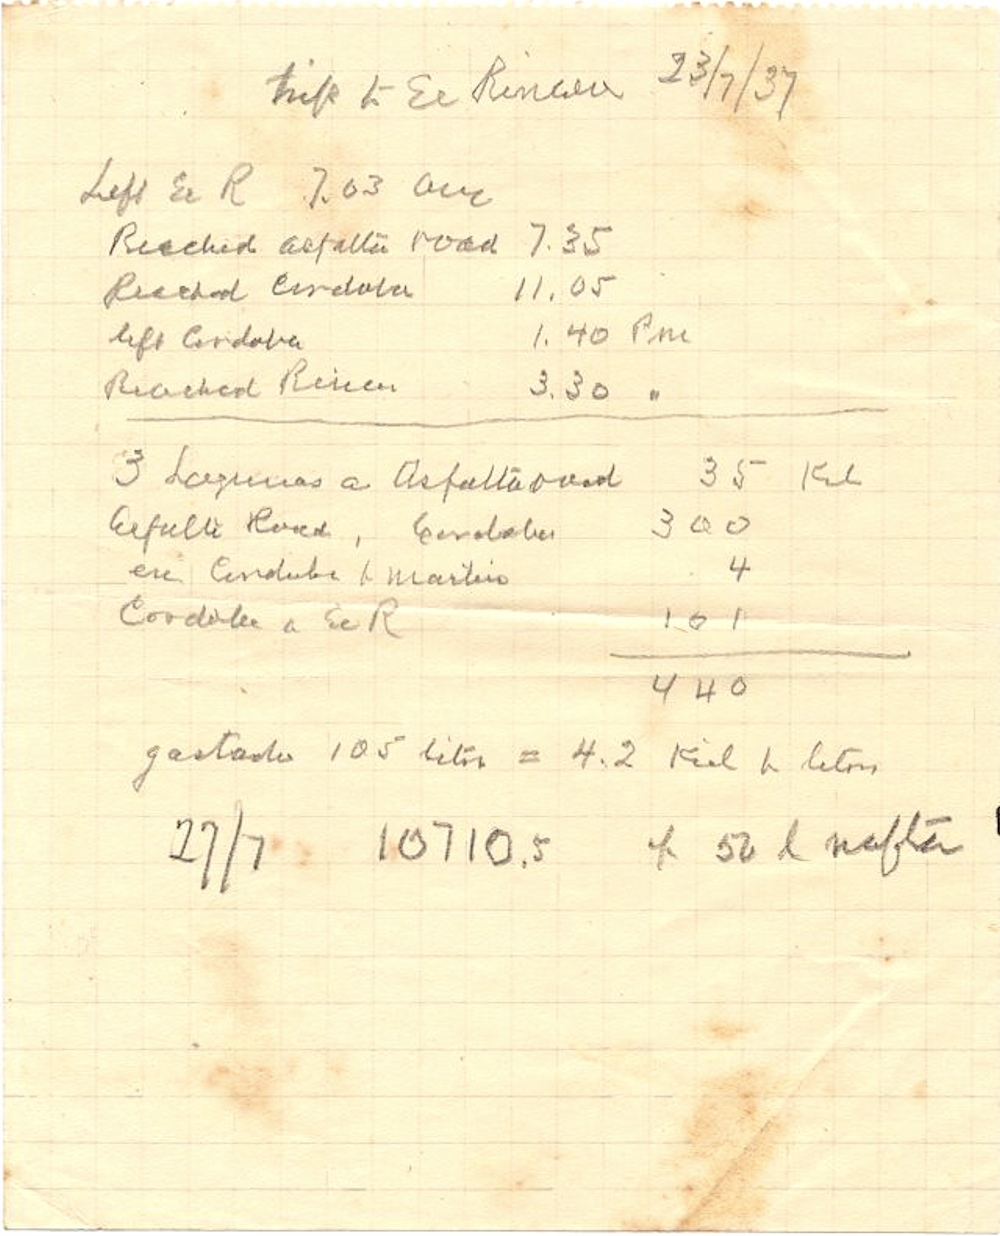 trip to El Rincon 23/7/37
Left El R 7.03 am
Reached asfalto road 7.35
Reached Cordoba 11.05
left Cordoba 1.40 Pm
Reached Rincon 3.30 "
3 Lagunas a Asfalto road 35 Kil
Asfalto Road, Cordoba 300
en Cordoba Martin 4
Cordoba a El R 101
440
gastado 105 litros = 4.2 Kil litro
27/7 10710.5 50 l nafta